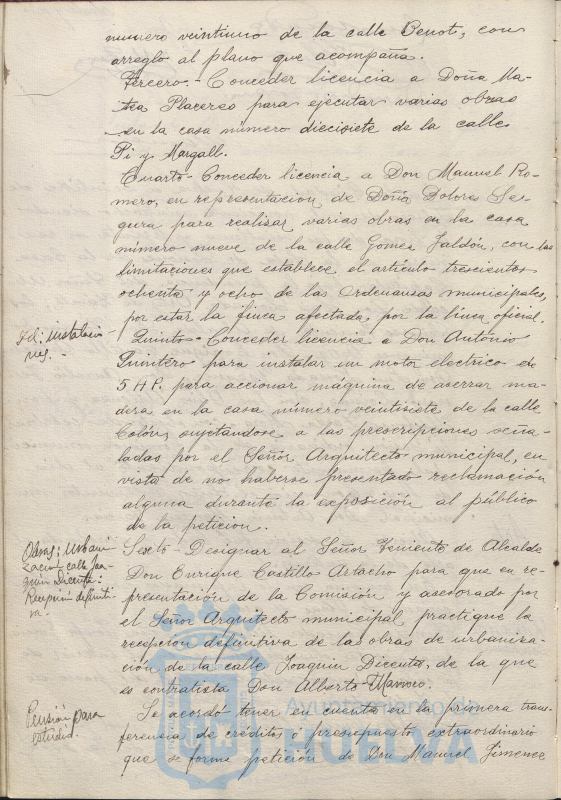 numero veintiuno de la calle Benot, con
arreglo al plano que acompaña.
Tercero.- Conceder licencia a Doña Ma-
tea Placeres para ejecutar varias obras
en la casa número diecisiete de la calle
Pi y Margall.
Cuarto- Conceder licencia a Don Manuel Ro-
mero, en representación de Doña Dolores Se-
gura para realizar varias obras en la casa
número nueve de la calle Gomez Jaldón, con las
limitaciones que establece el artículo trescientos
ochenta y ocho de las Ordenanzas municipales,
por estar la finca afectada, por la línea oficial.
Id: instalacio
nes.-
Quinto- Conceder licencia a Don Antonio
Quintero para instalar un motor electrico de
5 HP. para accionar máquina de aserrar ma-
dera en la casa número veintisiete de la calle
Colón, sujetandose a las prescripciones seña-
ladas por el Señor Arquitecto municipal, en
vista de no haberse presentado reclamación
alguna durante la exposición al público
de la petición.
Obras; Urbani
zación calle Joa-
quin Dicenta:
Recepción definiti-
va.
Sexto- Designar al Señor Teniente de Alcalde
Don Enrique Castillo Artacho para que en re-
presentación de la Comisión y asesorado por
el Señor Arquitecto municipal practique la
recepción definitiva de las obras de urbaniza-
ción de la calle Joaquin Dicenta, de la que
es contratista Don Alberto
Pensión para
estudio.
Se acordó tener en cuenta en la primera trans-
ferencia de crédito, ó presupuesto extraordinario
que se forme petición de Don Manuel Jimenez
Ayuntamiento de
HUELVA